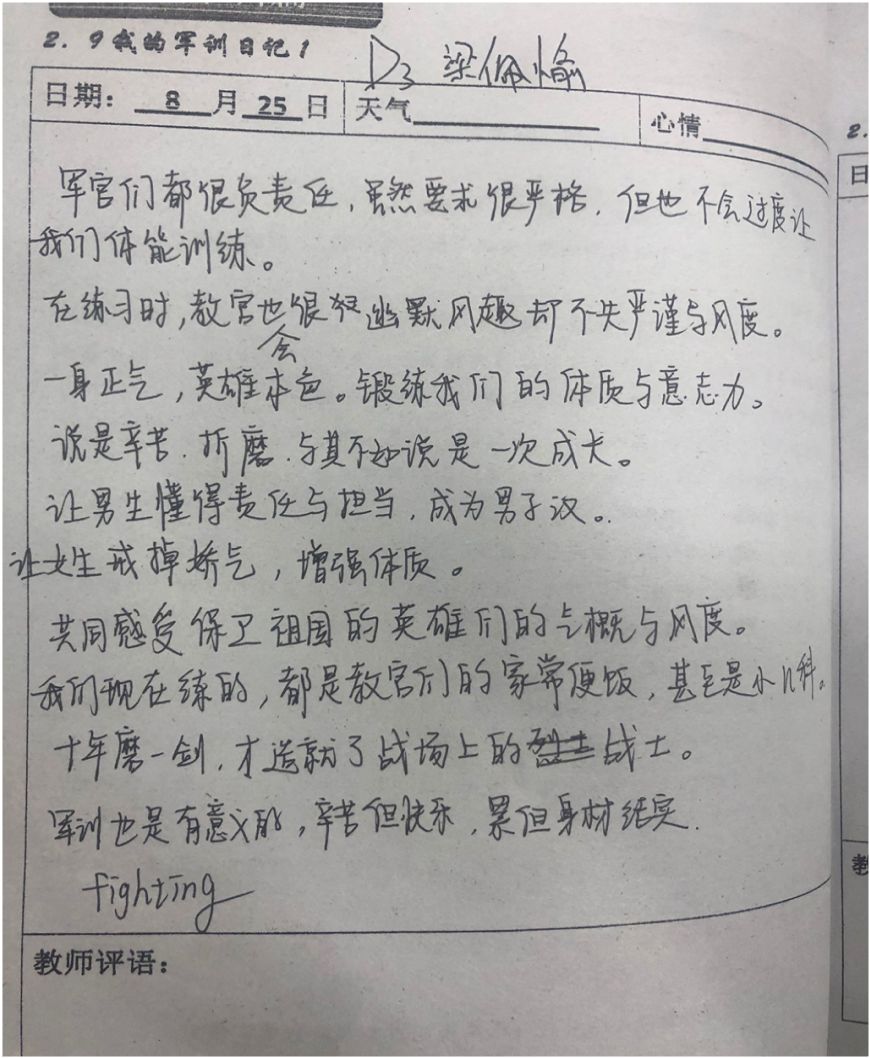 2.9我的军训日记1
D3 梁佩愉
日期： 8 月 25 日 天气 心情
军官们都很负责任，虽然要求很严格，但也不会过度让
我们体能训练。
在练习时，教官也很会幽默风趣却不失严谨与风度。
一身正气，英雄本色。锻练我们的体质与意志力。
说是辛苦．折磨．与其不如说是一次成长。
让男生懂得责任与担当，成为男子汉。
让女生戒掉娇气，增强体质。
共同感受保卫祖国的英雄们的气概与风度。
我们现在练的，都是教官们的家常便饭，甚至是小儿科。
十年磨一剑，才造就了战场上的战士。
军训也是有意义的，辛苦但快乐，累但身材结实．
fighting
教师评语：
2.
日
教